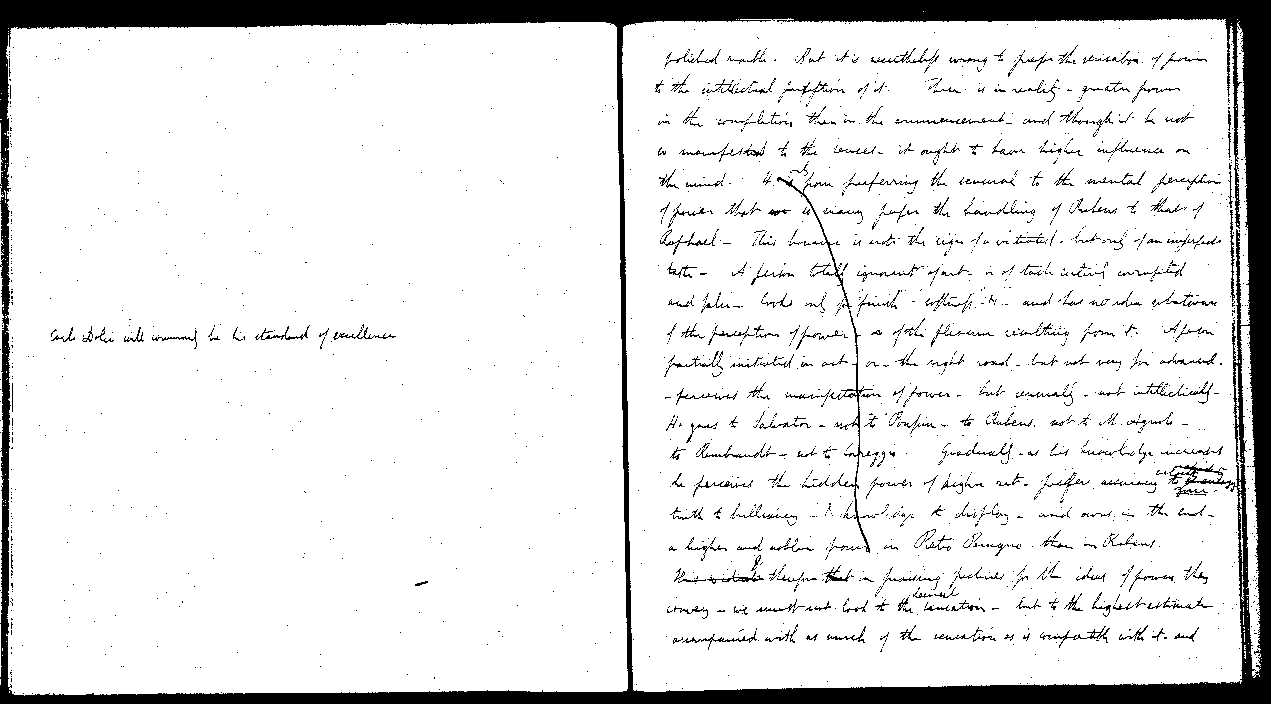 Carlo Dolci will commonly be his standard of excellence
polished marble. But it is nevertheless wrong to prefer the sensation of power
to the intellectual perception of it. There is in reality - greater power
in the completion than in the commencement - and though it be not
so manifested to the senses - it ought to have higher influence on
the mind. It is from preferring the sensual to the mental perception
of power that so many prefer the handling of Rubens to that of
Raphael - This however is not the sign of a vitiated, but only of an imperfect
taste - A person totally ignorant of art - is of taste entirely corrupted
and false - looks only for finish - softness - &c - and has no idea whatsoever
of the perception of power - or of the pleasure resulting from it. A person
partially initiated in art - on - the right road - but not very far advanced -
- perceives the manifestation of power - but sensually - not intellectually -
He goes to Salvator - not to Poussin - to Rubens, not to M. Angelo -
to Rembrandt - not to Correggio. Gradually - as his knowledge increases
he perceives the hidden power of higher art - prefers accuracy to
truth to brilliancy - knowledge to display - and owns, in the end -
a higher and nobler power in Pietro Perugino than in Rubens.
therefore in praising pictures for the ideas of power they
convey - we must not look to the sensual sensation - but to the highest estimate
accompanied with as much of the sensation as is compatible with it - and